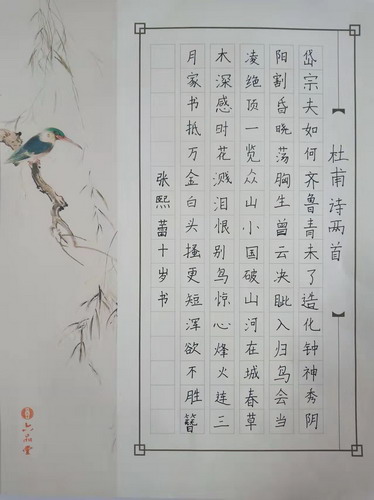 杜甫诗两首
岱宗夫如何齐鲁青未了造化钟神秀阴
阳割昏晓荡胸生曾云决眦入归鸟会当
凌绝顶一览众山小国破山河在城春草
木深感时花溅泪恨别鸟惊心烽火连三
月家书抵万金白头搔更短浑欲不胜簪
张熙蕾十岁书
六品堂